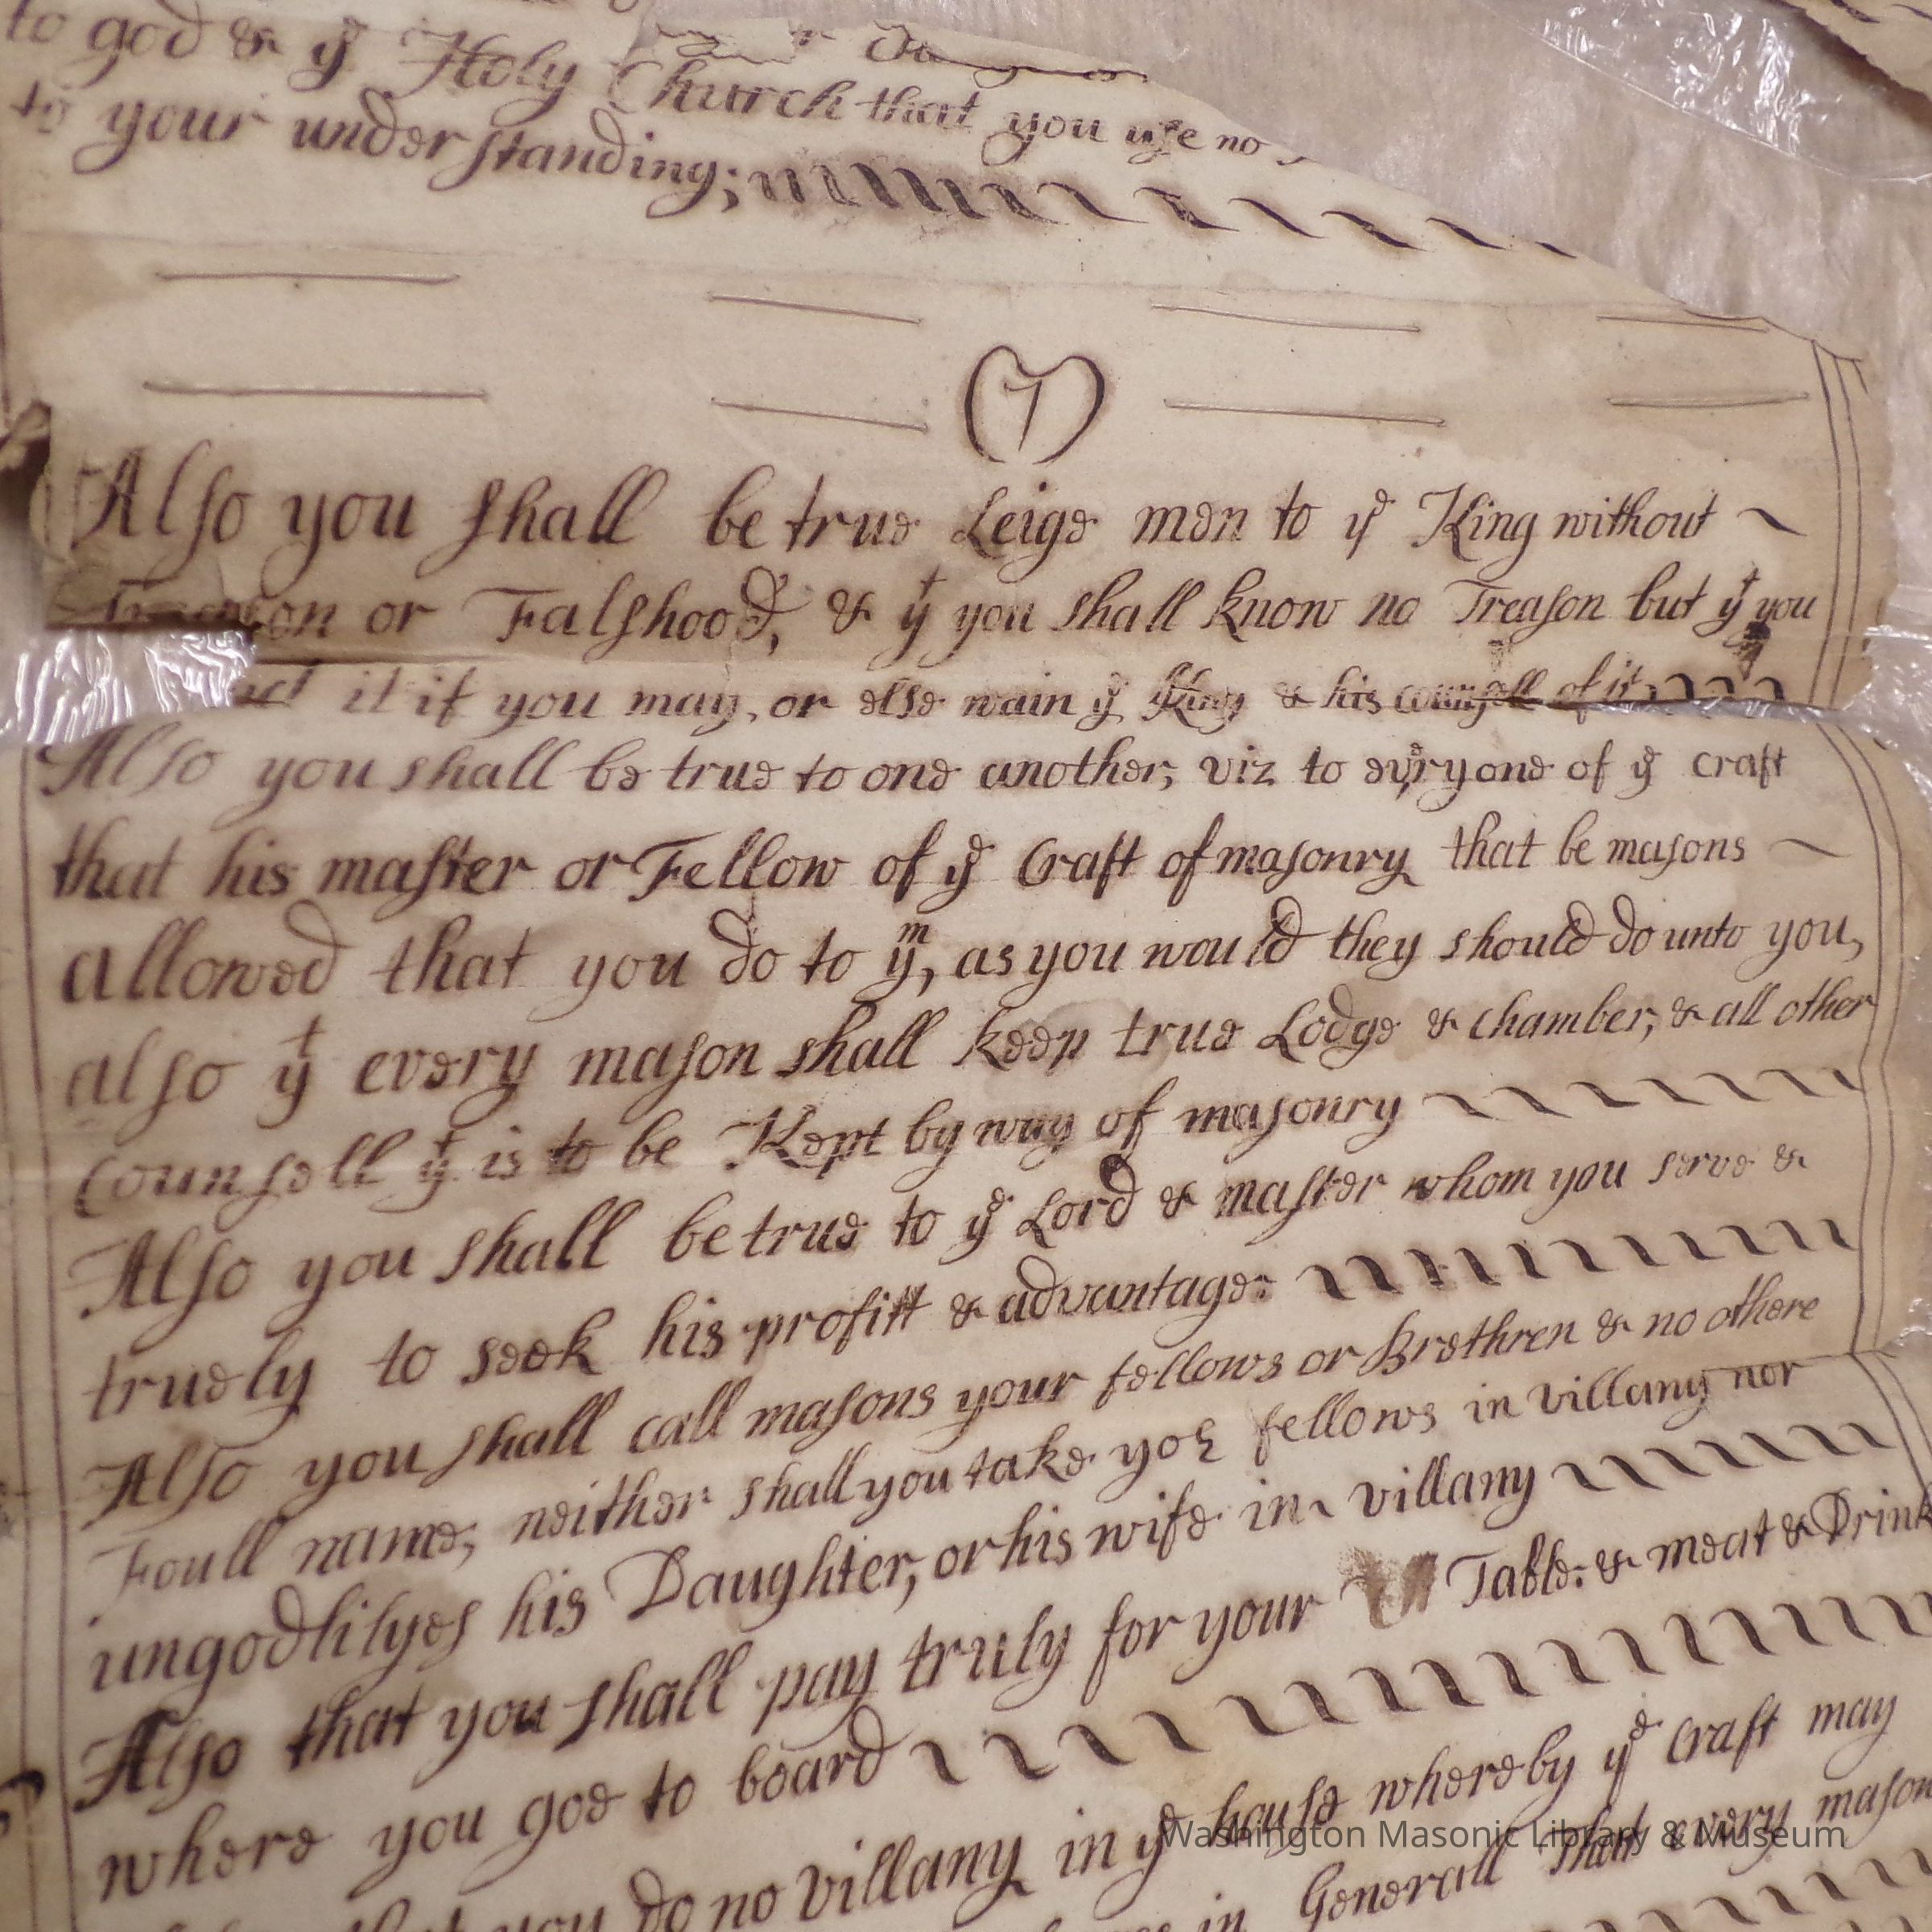 to god & yͤ Holy Church that you use no
to your understanding;
(7)
Also you shall be true Leige men to yͤ King without
or Falshood, & yͭ you shall know no Treason but yͭ you
it if you may, or else wain yͤ King & his counsell of it
Also you shall be true to one another, viz to evͤryone of yͤ craft
that his master or Fellow of yͤ Craft of masonry that be masons
allowed that you do to yͫ, as you would they should do unto you,
also yͭ every mason shall keep true Lodge & chamber, & all other
Counsell yͭ is to be Kept by way of masonry
Also you shall be true to yͤ Lord & master whom you serve &
truely to seek his profitt & advantage:
Also you shall call masons your fellows or Brethren & no othere
Foull name, neither shall you take yoʳ fellows in villany nor
ungodlilyes his Daughter, or his wife in villany
Also that you shall pay truly for your Table: & meat & Drink
where you goe to board
you do no villany in yͤ house whereby yͤ Craft may
in Generall that every mason
Washington Masonic Library & Museum